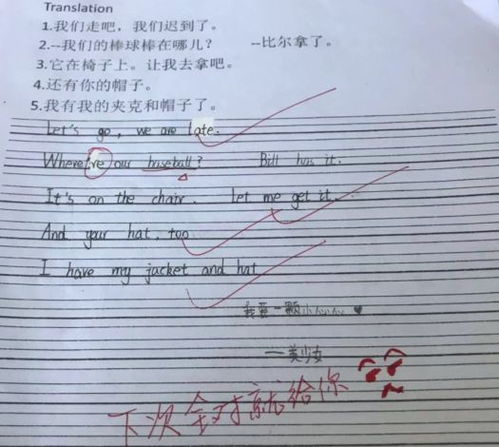 Translation
1.我们走吧，我们迟到了。
2.--我们的棒球棒在哪儿？ --比尔拿了。
3.它在椅子上。让我去拿吧。
4.还有你的帽子。
5.我有我的夹克和帽子了。
Let's go, we are late.
Where're our baseball? Bill has it.
It's on the chair. Let me get it.
And your hat, too
I have my jacket and hat
我要一颗小
——美少女
下次全对就给你